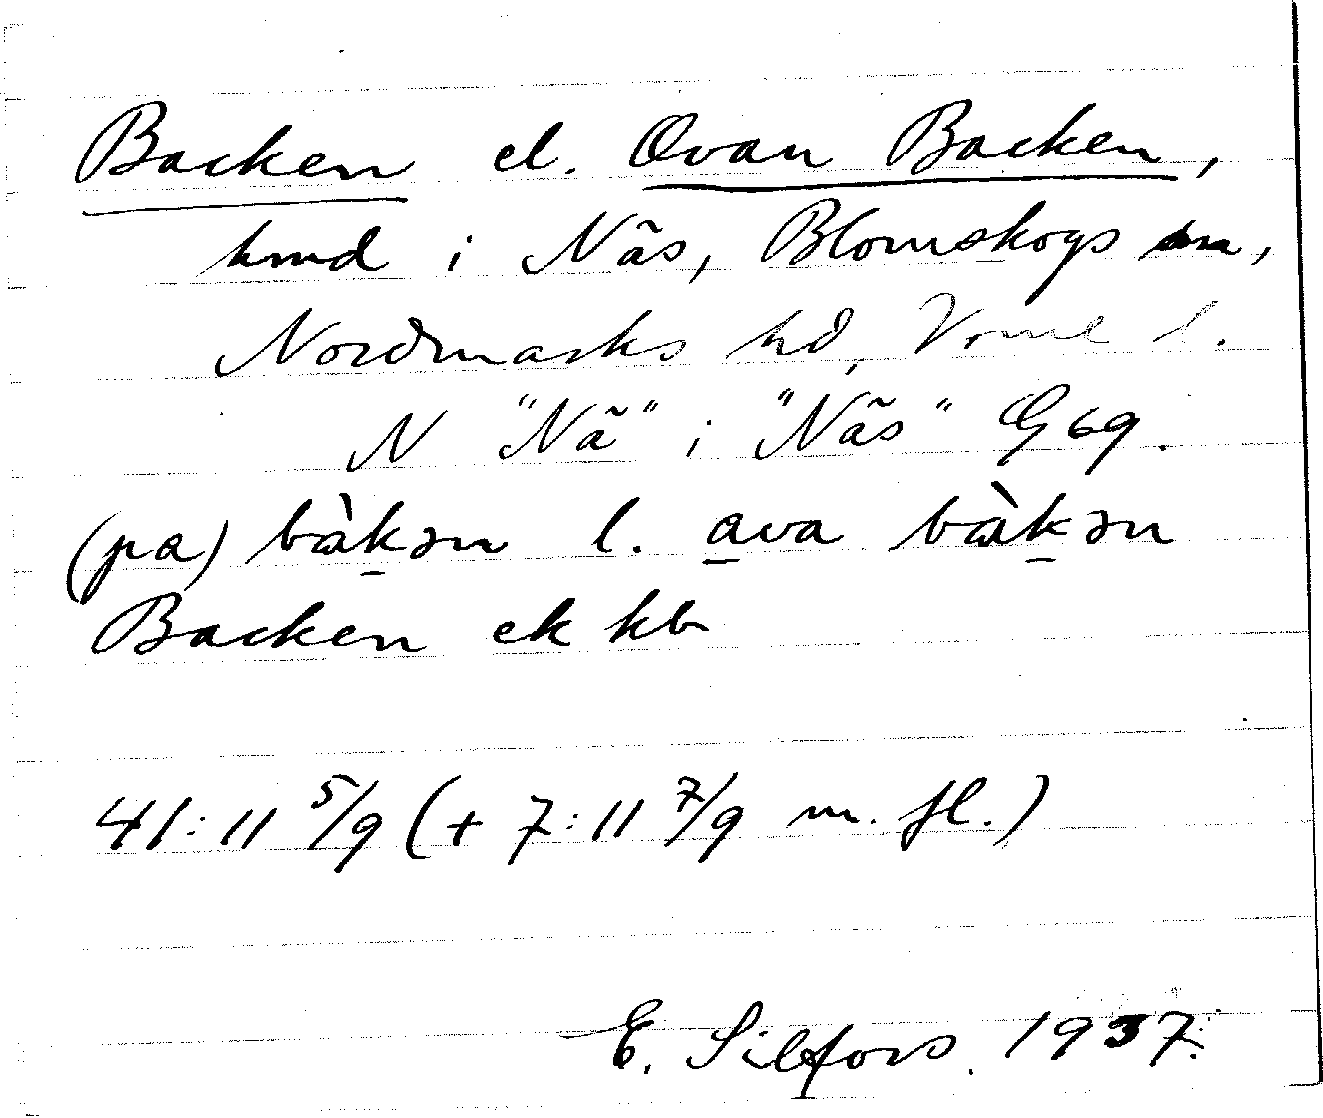 Backen el. Ovan Backen,
hmd i Näs, Blomskogs sn,
Nordmarks hd, Vrml l.
N "Nä" i "Näs" G69.
(pa) bàkən l. ava bàkən
Backen ek kb
41:11 5/9 (+ 7:11 7/9 m. fl.)
E. Silfors. 1937.